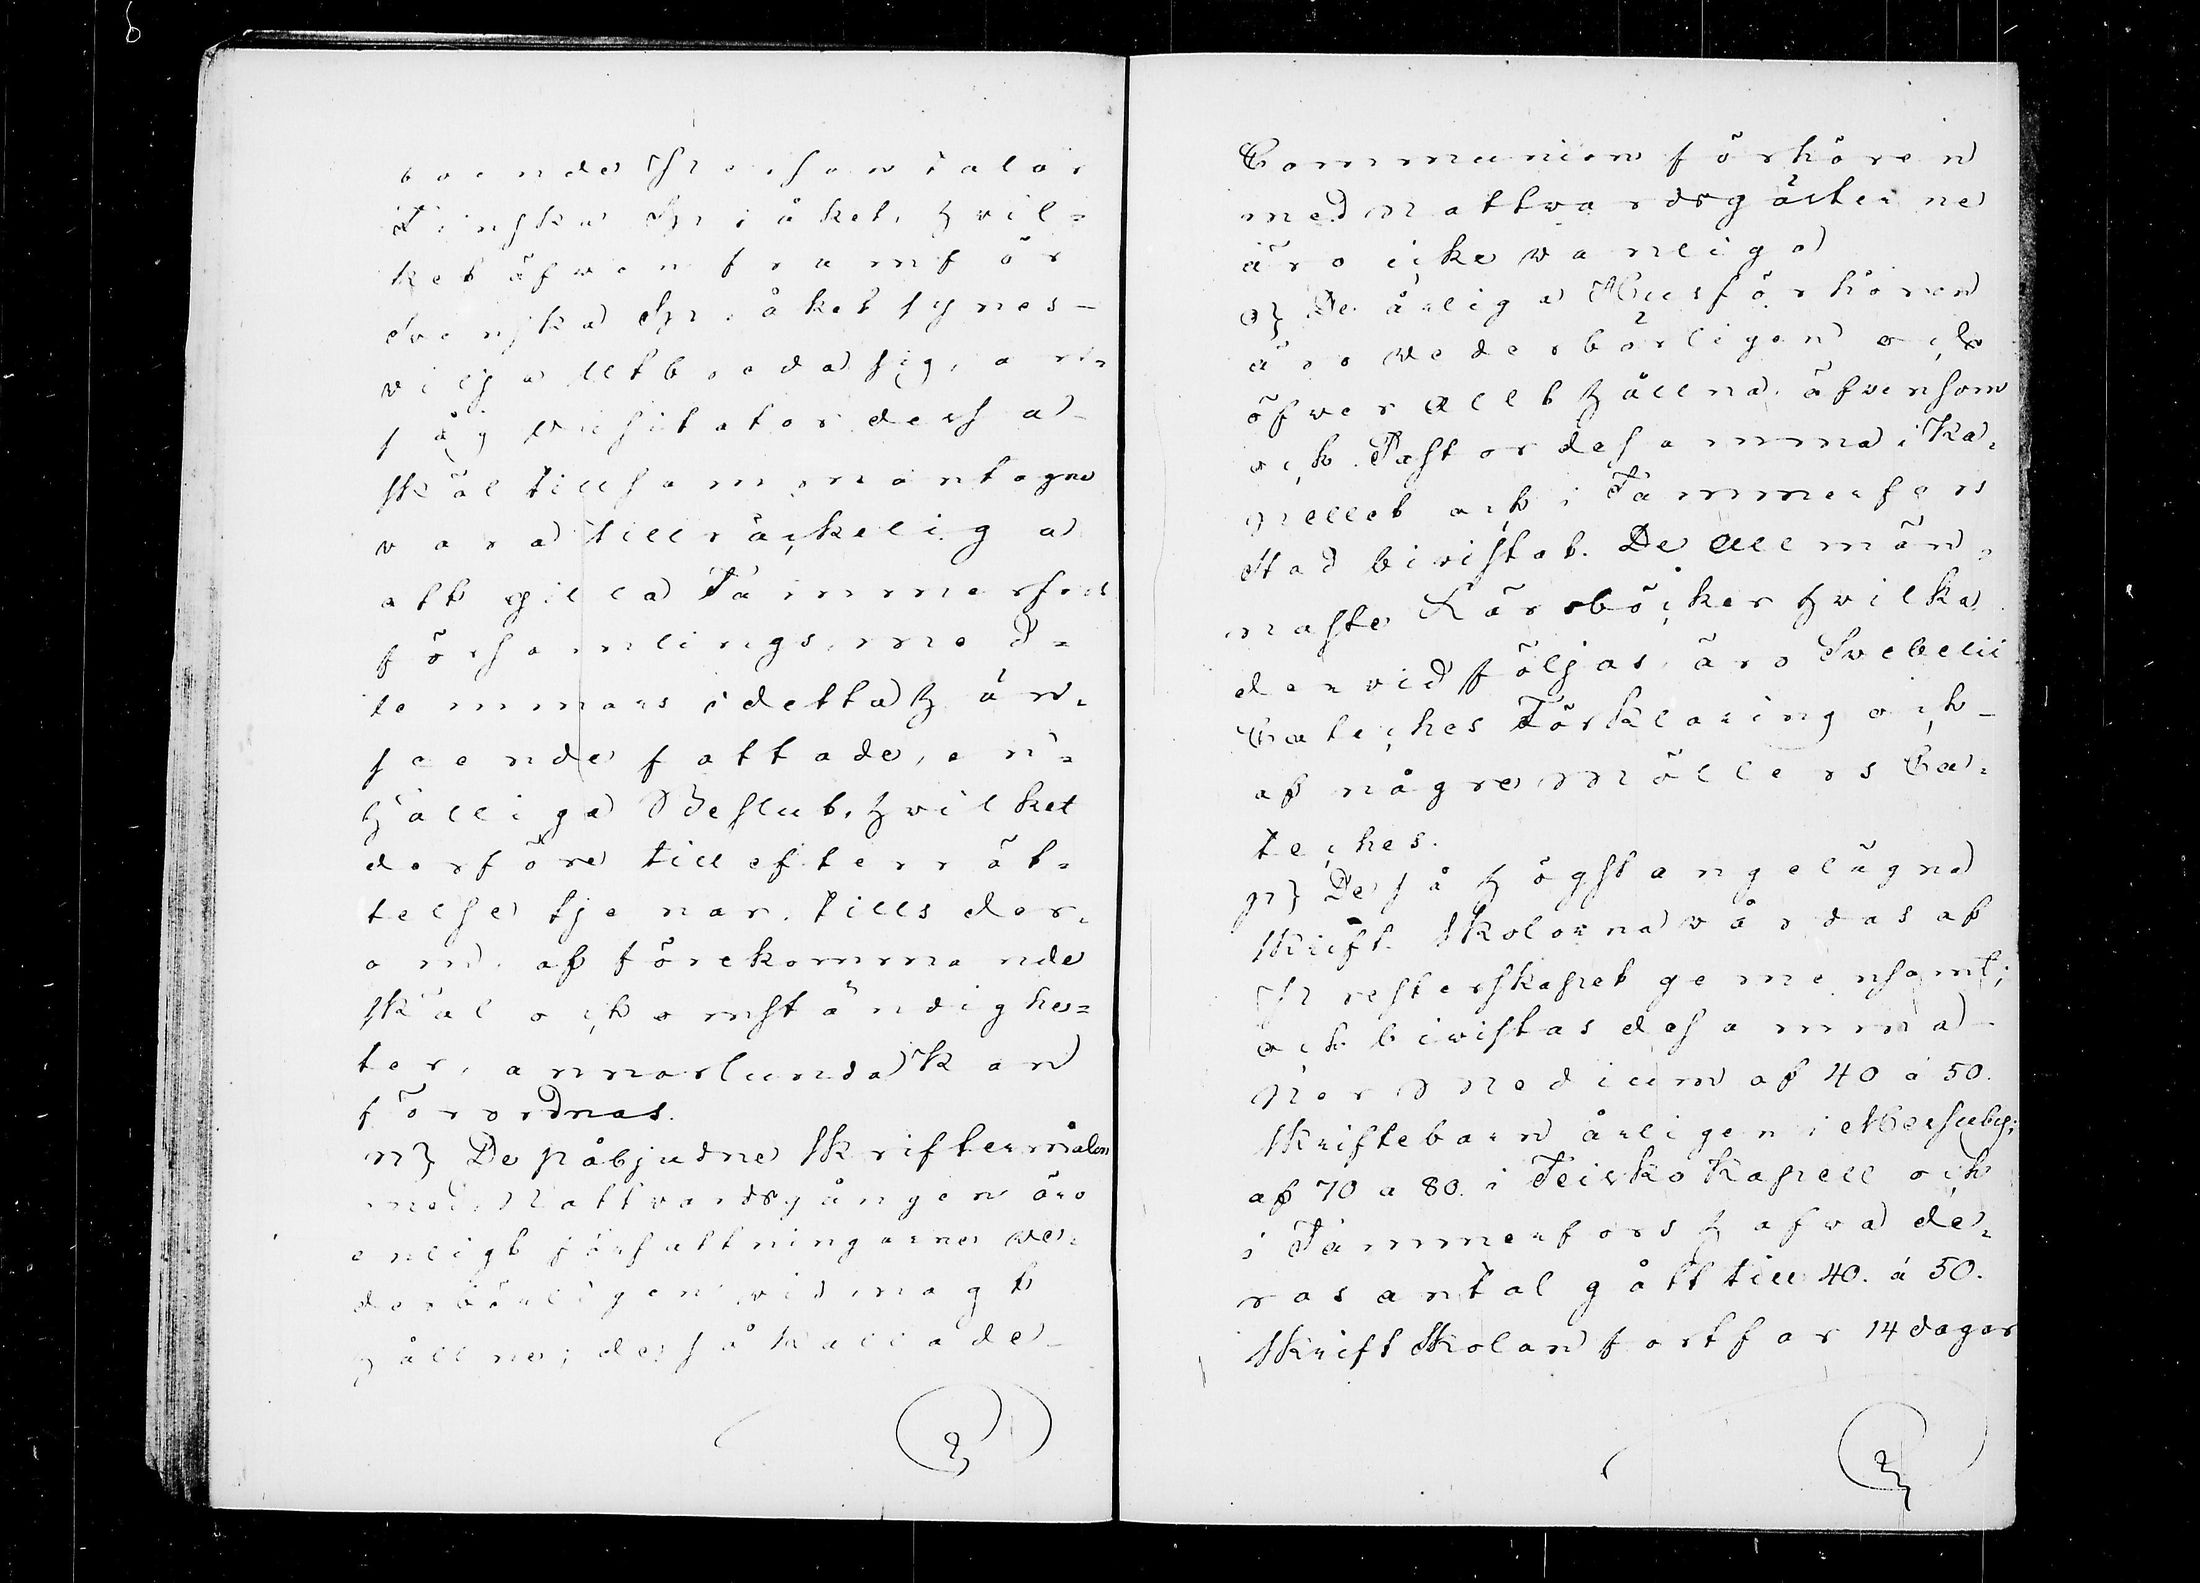 boende Personer talar
Finska Språket, hvil=
ket äfven framför
Svenska Språket synes
vilja utbreda sig, an=
såg Visitator dessa
skäl tillsammantagne
vara tillräckeliga
att gilla Tammerfors
församlings med=
lemmars i detta hän=
seende fattade, en=
hälliga Beslut, hvilket
derföre till efterrät=
telse tjenar, tills der=
om, af förekommande
skäl och omständighe=
ter, annorlunda kan
förordnas.
n} De påbjudne Skriftermålen
med Nattvardsgången äro
enligt författningarne ve=
derbörligen vid magt
hållne; de så kallade
Communion förhören
med Nattvardsgästerne
äro icke vanliga
o} De årliga Husförhören
äro vederbörligen och
öfverallt hållna, äfvensom
ock Pastor desamma i Ka=
pellet och i Tammerfors
Stad bivistat. De Allmän=
naste Läroböcker hvilka
dervid följas, äro Svebelii
Cateches Förklaring och
af någre Möllers Ca=
teches.
p} De så högst angelägna
Skrift Skolorna vårdas af
Presterskapet gemensamt;
och bivistas desamma
per Medium af 40 á 50.
Skriftebarn årligen i Messuby;
af 70 a 80. i Teisko Kapell och
i Tammerfors hafva de=
ras antal gått till 40. á 50.
Skrift Skolan fortfar 14 dagar